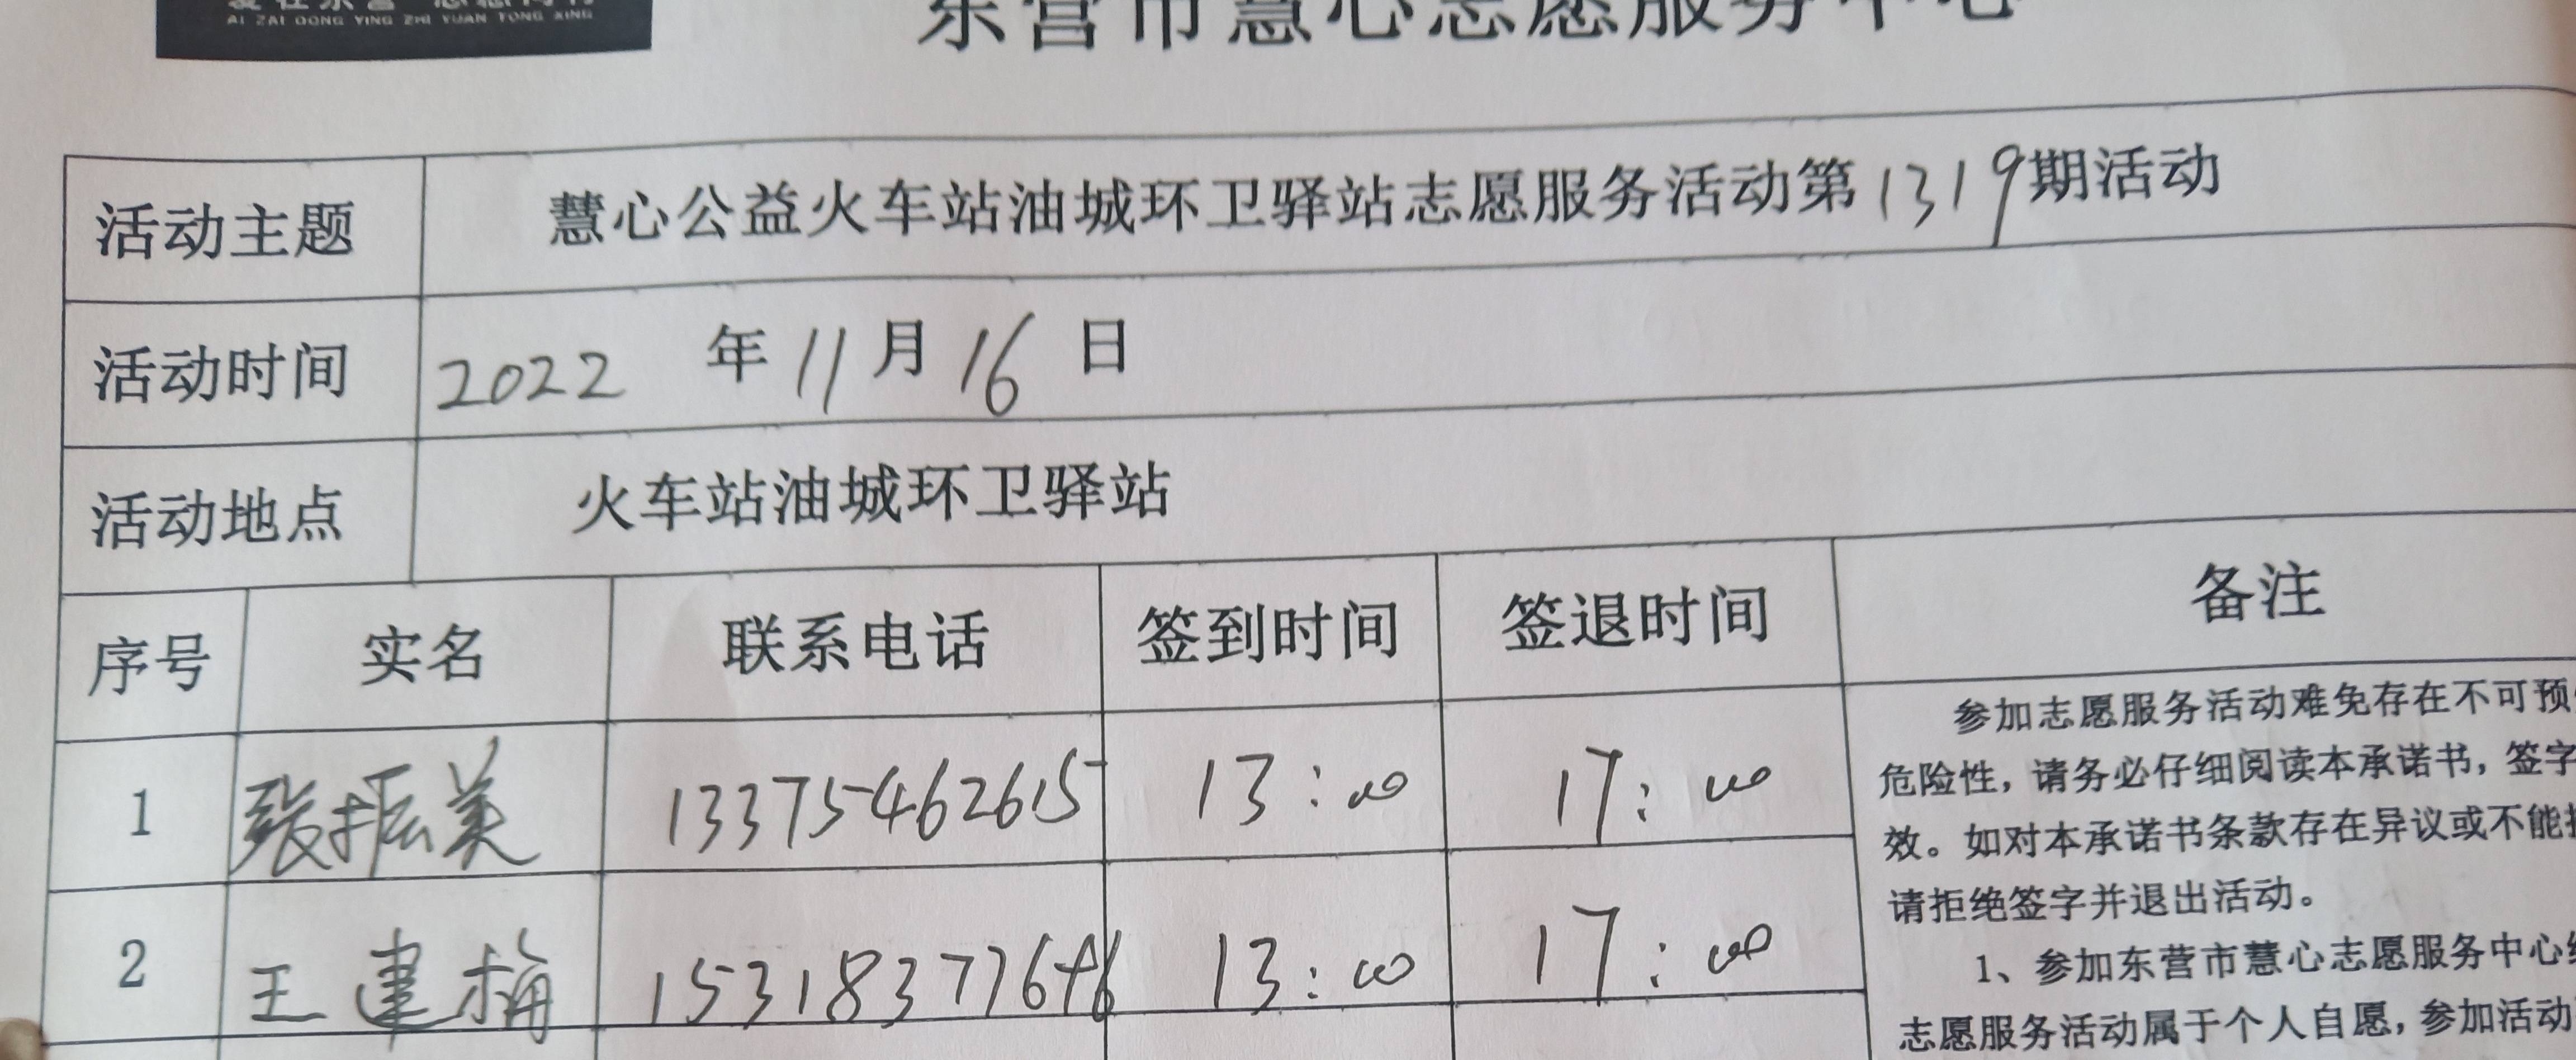 爱在东营 志愿同行
AI ZAI DONG YING ZHI YUAN TONG XING
东营市慧心志愿服务中心
活动主题 慧心公益火车站油城环卫驿站志愿服务活动第1319期活动
活动时间 2022 年 11 月 16 日
活动地点 火车站油城环卫驿站
序号 实名 联系电话 签到时间 签退时间 备注
1 张振美 13375462615 13:00 17:00
2 王建梅 13:00 17:00
参加志愿服务活动难免存在不可预
危险性，请务必仔细阅读本承诺书，签字
效。如对本承诺书条款存在异议或不能
请拒绝签字并退出活动。
1、参加东营市慧心志愿服务中心
志愿服务活动属于个人自愿，参加活动